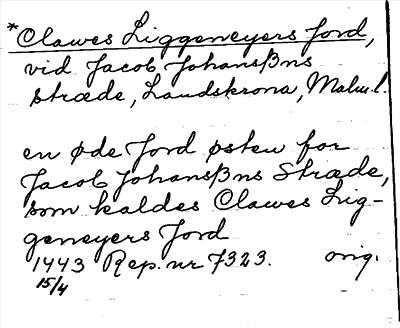 *Clawes Liggeneyers Jord,
vid Jacob Johanssßns
stræde, Landskrona, Malm.l.
en øde Jord østen for
Jacob Johansßns Stræde,
som kaldes Clawes Lig-
geneyers Jord
1443 Rep. nr 7323. orig.
15/4